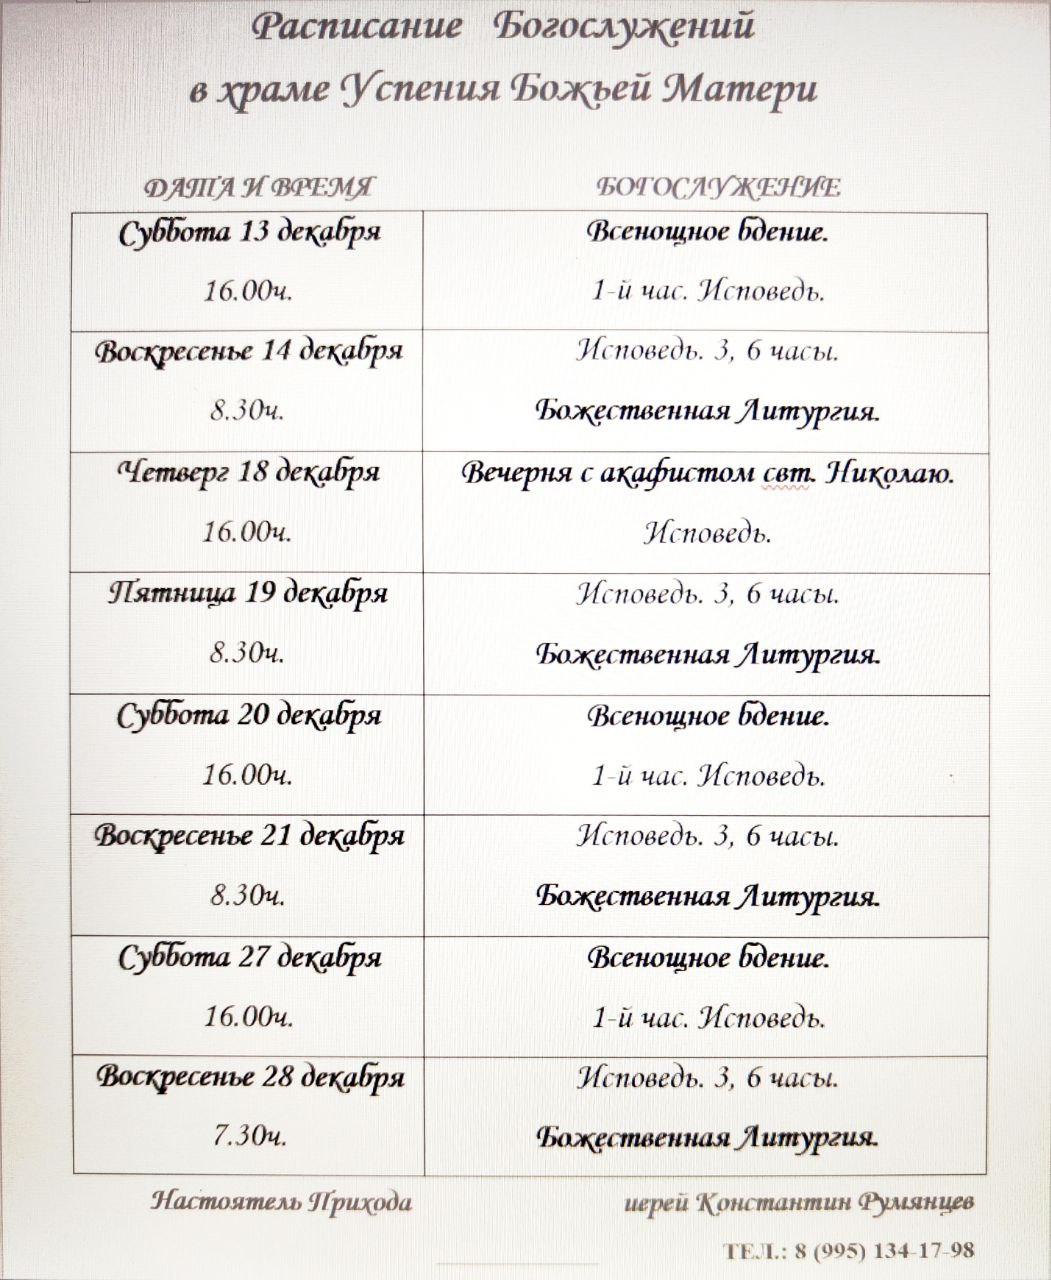 Расписание Богослужений
в храме Успения Божьей Матери
ДАТА И ВРЕМЯ БОГОСЛУЖЕНИЕ
Суббота 13 декабря Всенощное бдение.
16.00ч. 1-й час. Исповедь.
Воскресенье 14 декабря Исповедь. 3, 6 часы.
8.30ч. Божественная Литургия.
Четверг 18 декабря Вечерня с акафистом свт. Николаю.
16.00ч. Исповедь.
Пятница 19 декабря Исповедь. 3, 6 часы.
8.30ч. Божественная Литургия.
Суббота 20 декабря Всенощное бдение.
16.00ч. 1-й час. Исповедь.
Воскресенье 21 декабря Исповедь. 3, 6 часы.
8.30ч. Божественная Литургия.
Суббота 27 декабря Всенощное бдение.
16.00ч. 1-й час. Исповедь.
Воскресенье 28 декабря Исповедь. 3, 6 часы.
7.30ч. Божественная Литургия.
Настоятель Прихода иерей Константин Румянцев
ТЕЛ.: 8 (995) 134-17-98